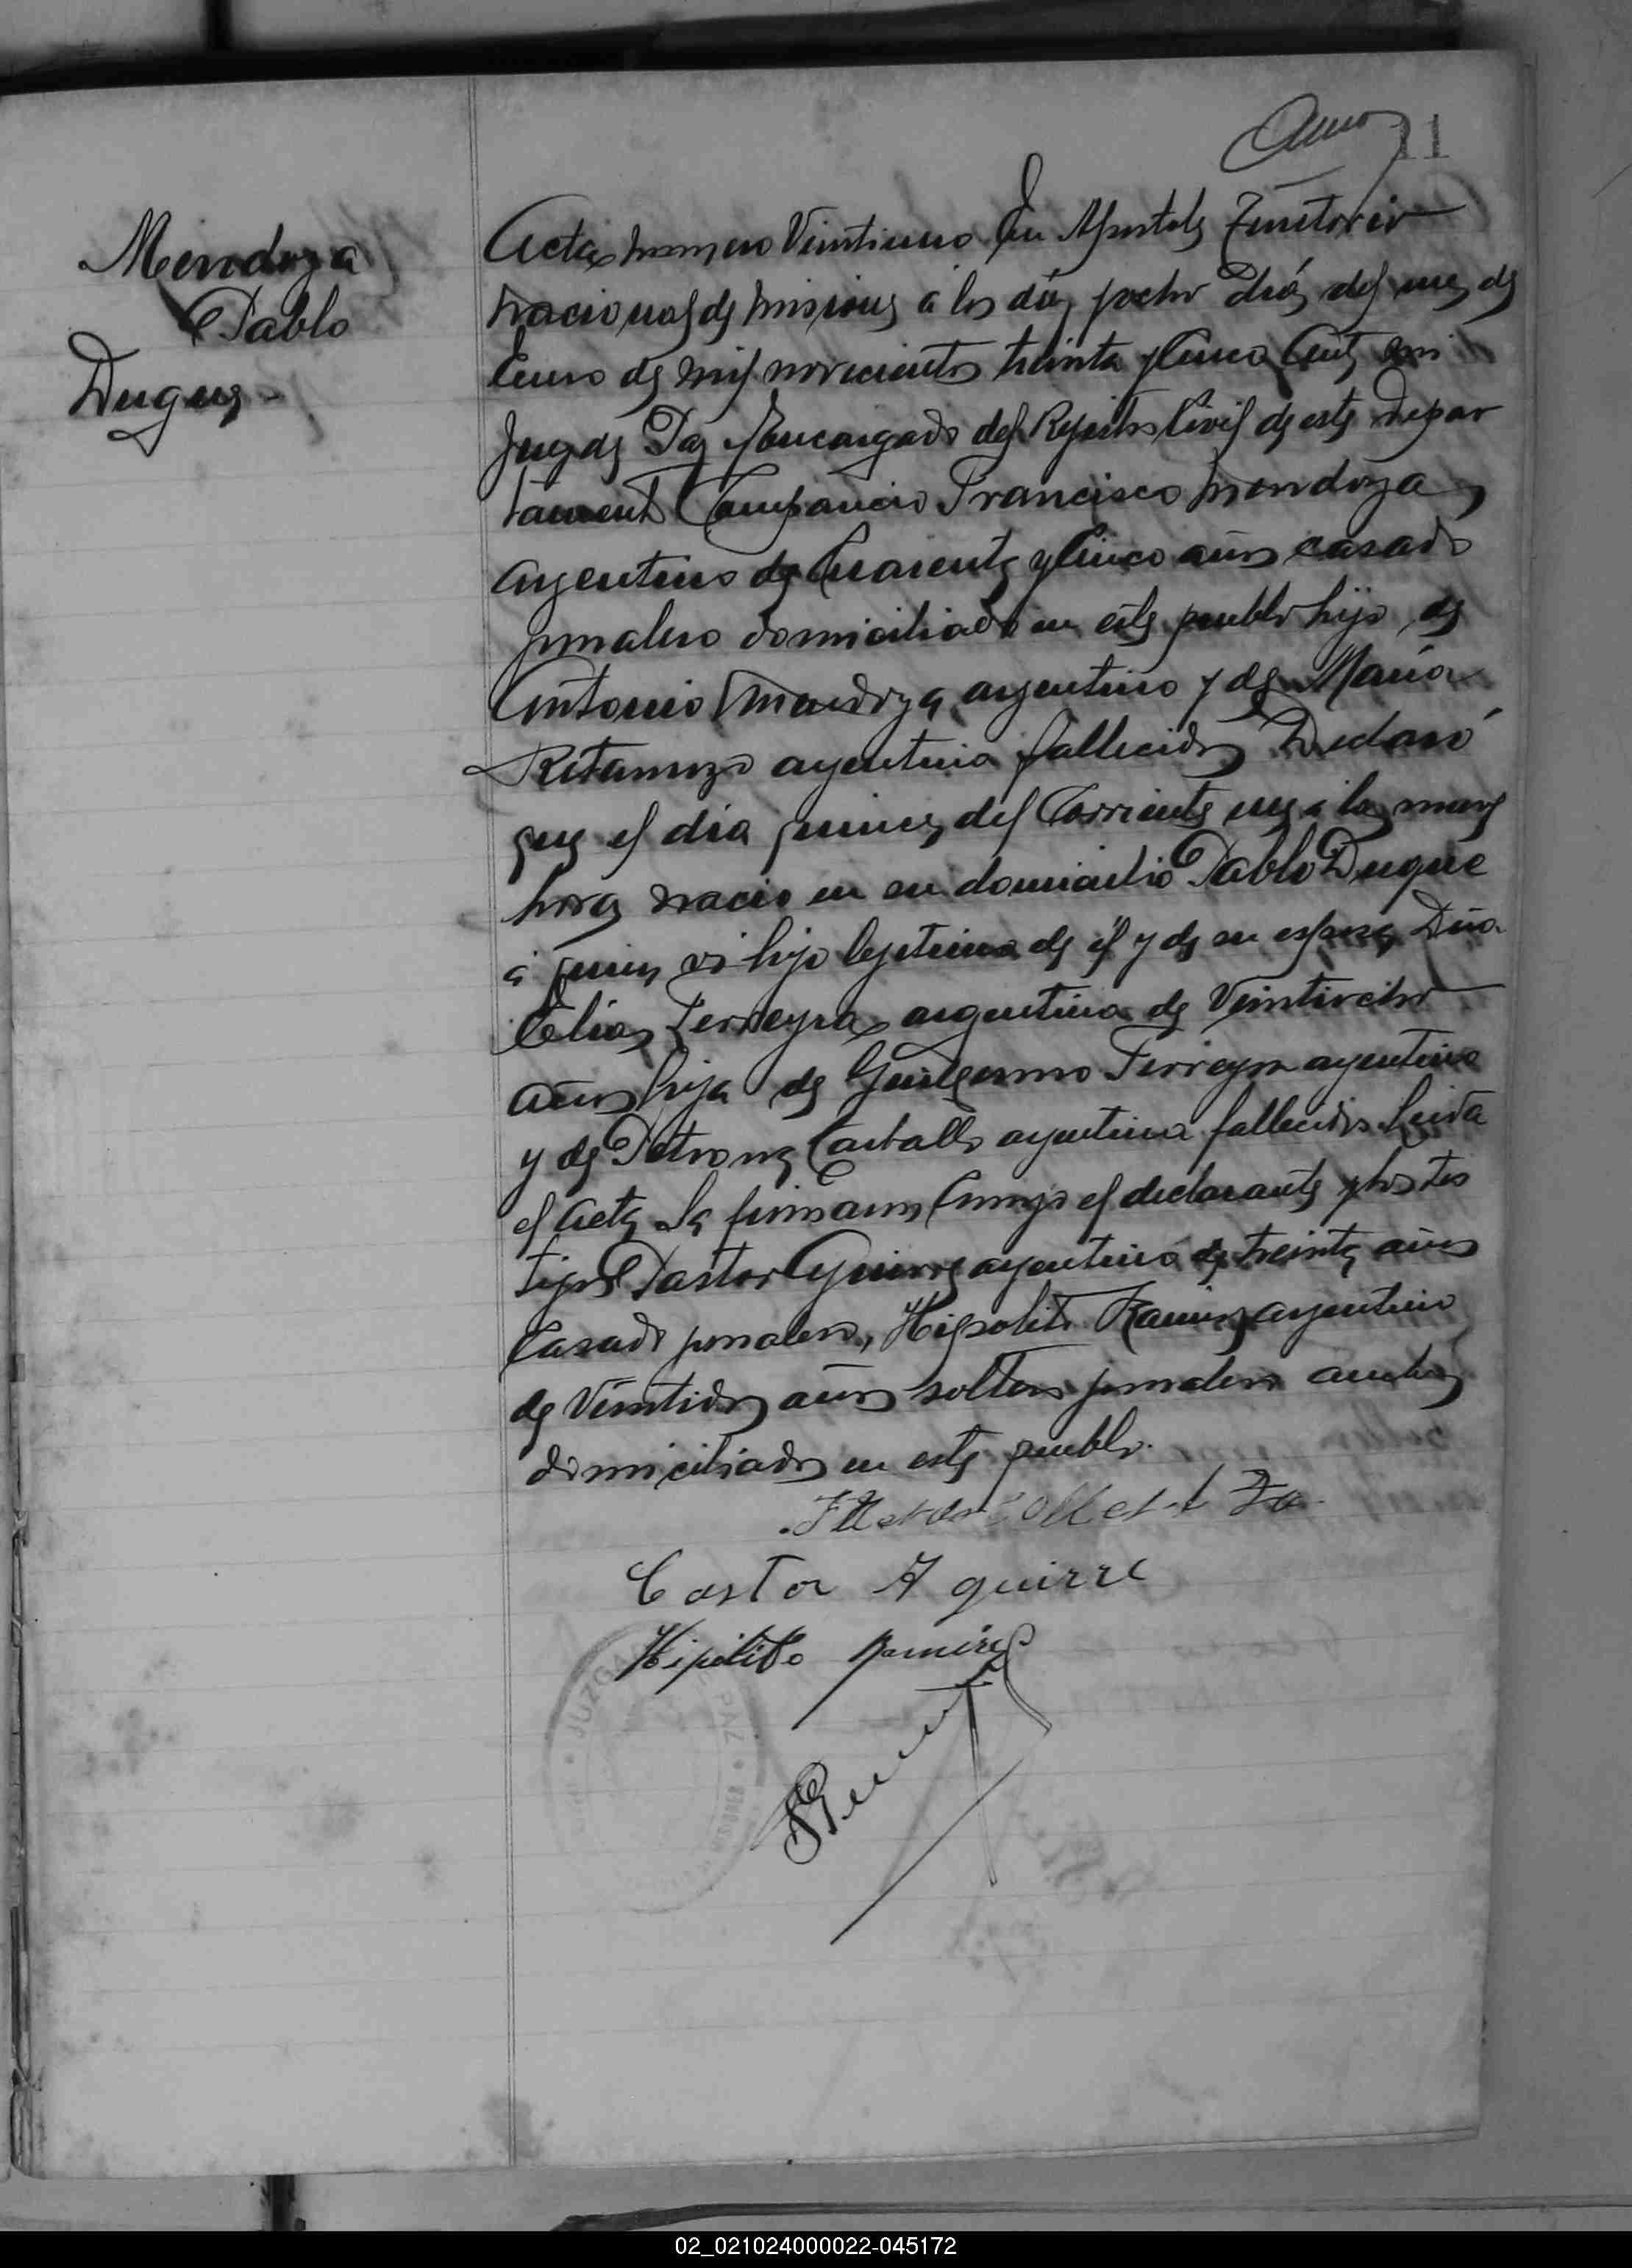 11
Mendoza
Pablo
Duque
Acta numero Veintiuno En Apostoles Territorio
nacional de Misiones á los diez y ocho dias del mes de
Enero de mil novecientos treinta y cinco ante mi
Juez de Paz Encargado del Rejistro Civil de este Depar
tamento Comparecio Francisco Mendoza
argentino de Cuarenta y Cinco años casado
jornalero domiciliado en este pueblo hijo de
Antonio Mendoza argentino y de Maria
Retamozo argentina fallecidos Declaró
que el dia quince del Corriente mes á las nueve
horas nacio en su domicilio Pablo Duque
á quien vi hijo lejitimo de él y de su esposa Dña
Celia Ferreyra argentina de Veintiocho
años hija de Guillermo Ferreyra argentino
y de Petrona Carballo argentina fallecidos Leida
el Acta La firmaron Conmigo el declarante y los tes
tigos Pastor Aguirre argentino de treinta años
Casado jornalero, Hipolito Ramirez argentino
de Veintidos años soltero jornalero ambos
domiciliados en este pueblo.
Castor Aguirre
Hipolito Ramirez
JUZGA PAZ
MISIONES
02_021024000022-045172